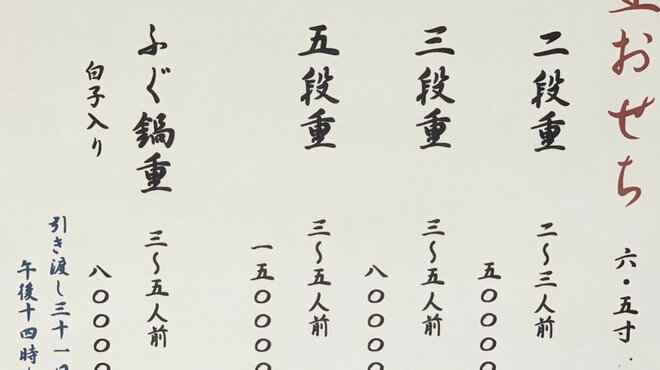 おせち
六・五寸
二段重
二〜三人前
五〇〇〇
三段重
三〜五人前
八〇〇〇
五段重
三〜五人前
一五〇〇〇〇
ふぐ鍋重
三〜五人前
白子入り
八〇〇〇〇
引き渡し三十一日
午後十四時